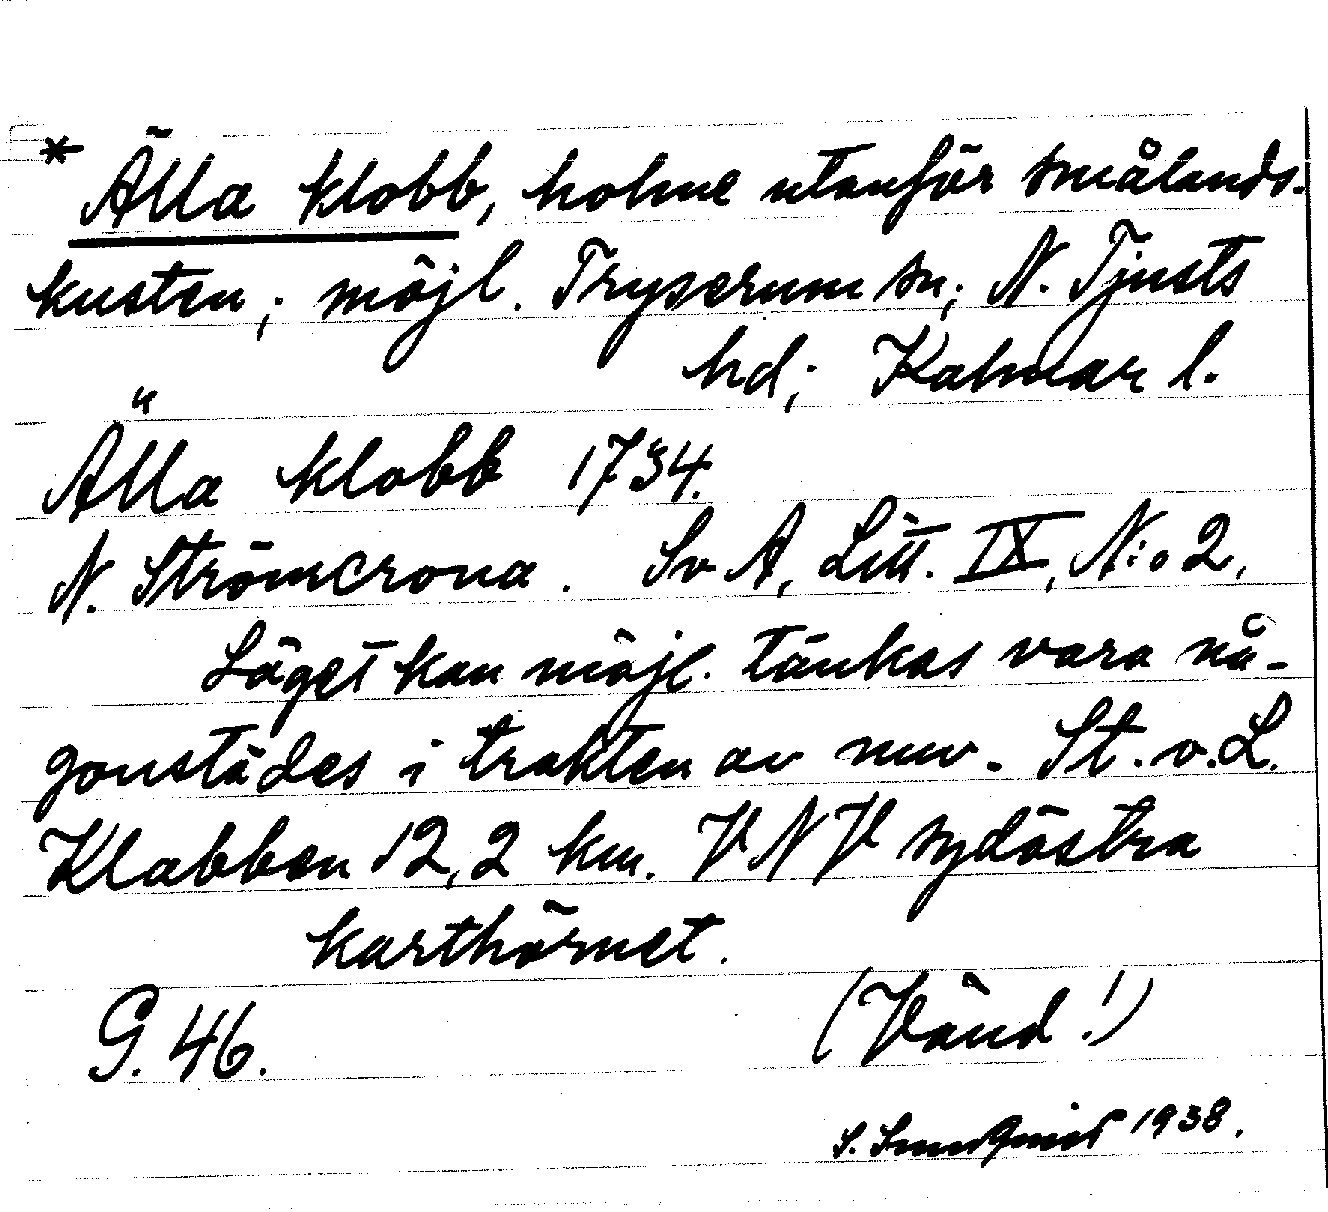 * Älla klobb, holme utanför smålands-
kusten; möjl. Tryserum sn; N. Tjusts
hd; Kalmar l.
Älla klobb 1734.
N. Strömcrona. Sv A, Litt. IX, N:o 2,
Läget kan möjl. tänkas vara nå-
gonstädes i trakten av nuv. St. o. L.
Klabben 12,2 km. VNV sydöstra
karthörnet.
G. 46. (Vänd!)
S. 1938.